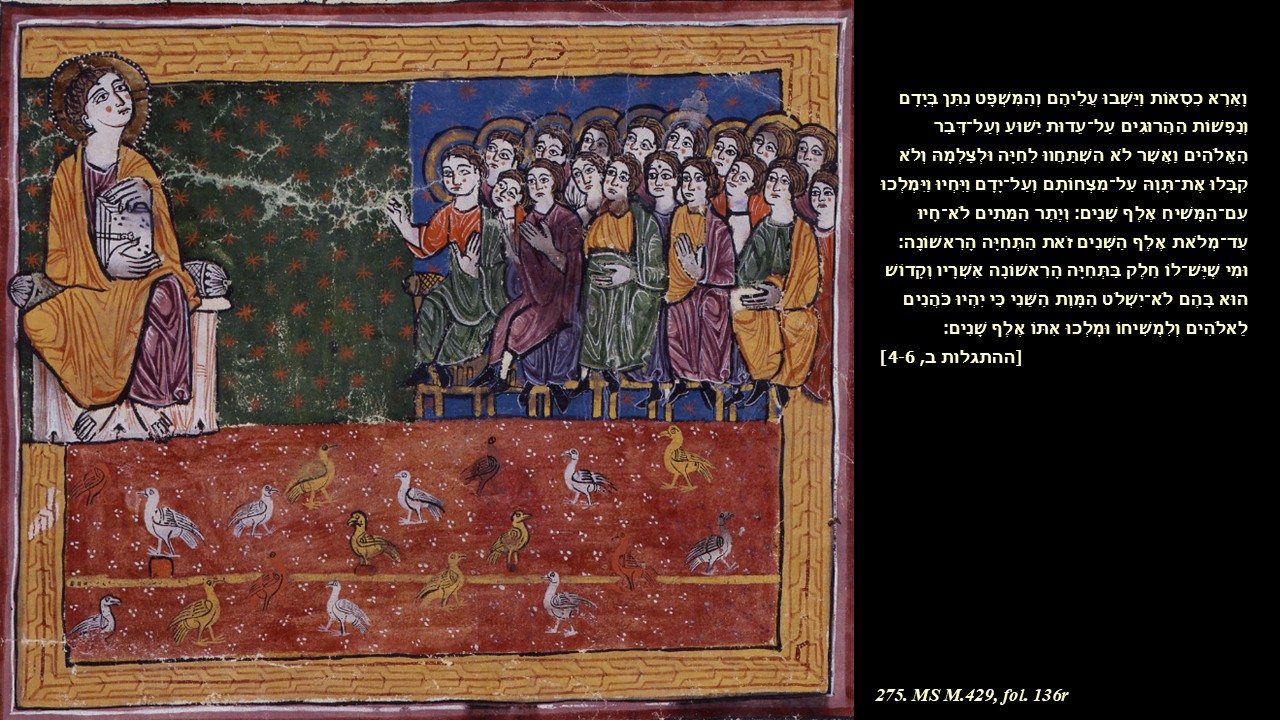 וָאֵרֶא כִסְאוֹת וַיֵּשְׁבוּ עֲלֵיהֶם וְהַמִּשְׁפָּט נִתַּן בְּיָדָם
וְנַפְשׁוֹת הַהֲרוּגִים עַל־עֵדוּת יֵשׁוּעַ וְעַל־דְּבַר
הָאֱלֹהִים וַאֲשֶׁר לֹא הִשְׁתַּחֲווּ לַחַיָּה וּלְצַלְמָהּ וְלֹא
קִבְּלוּ אֶת־תָּוָהּ עַל־מִצְחוֹתָם וְעַל־יָדָם וַיִּחְיוּ וַיִּמְלְכוּ
עִם־הַמָּשִׁיחַ אֶלֶף שָׁנִים׃ וְיֶתֶר הַמֵּתִים לֹא־חָיוּ
עַד־מְלֹאת אֶלֶף הַשָּׁנִים זֹאת הַתְּחִיָּה הָרִאשׁוֹנָה׃
וּמִי שֶׁיֵּשׁ־לוֹ חֵלֶק בַּתְּחִיָּה הָרִאשׁוֹנָה אַשְׁרָיו וְקָדוֹשׁ
הוּא בָּהֶם לֹא־יִשְׁלֹט הַמָּוֶת הַשֵּׁנִי כִּי יִהְיוּ כֹּהֲנִים
לֵאלֹהִים וְלִמְשִׁיחוֹ וּמָלְכוּ אִתּוֹ אֶלֶף שָׁנִים׃
[ההתגלות ב, 4-6]
275. MS M.429, fol. 136r